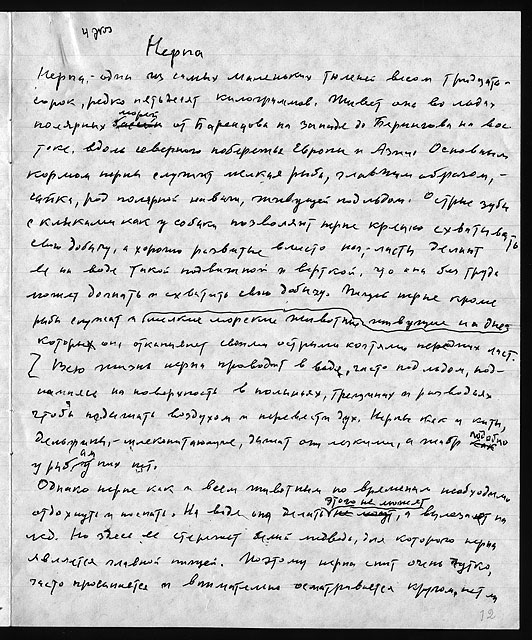 4 экз
Нерпа
Нерпа, - один из самых маленьких тюленей весом тридцать-
сорок, редко пятьдесят килограммов. Живет она во льдах
полярных морей от Баренцова на западе до Берингова на вос
токе, вдоль северного побережья Европы и Азии. Основным
кормом нерпы служит мелкая рыба, главным образом, -
сайка, род полярной наваги, живущей подо льдом. Острые зубы
с клыками как у собаки позволяют нерпе крепко схватывать
свою добычу, а хорошо развитые вместо ног, - ласты делают
ее на воде такой подвижной и верткой, что она без труда
может догнать и схватить свою добычу. Пищей нерпе кроме
рыбы служат и мелкие морские животные живущие на дне,
которых она откапывает своими острыми когтями передних ласт.
Всю жизнь нерпа проводит в воде, часто подо льдом, под-
нимаясь на поверхность в полыньях, трещинах и разводьях
чтобы подышать воздухом и перевести дух. Нерпы как и киты,
дельфины, - млекопитающие, дышат они легкими, а жабр подобно
у рыб у них нет.
Однако нерпе как и всем животным по временам необходимо
отдохнуть и поспать. На воде она делать этого не может, а вылезает на
лед. Но здесь ее стережет белый медведь, для которого нерпа
является главной пищей. Поэтому нерпа спит очень чутко,
часто просыпается и внимательно осматривается кругом, нет ли
12